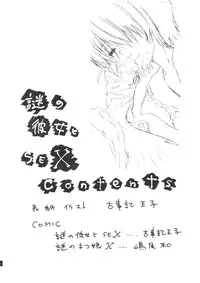 謎の
彼女と
SEX
Contents
表紙 イラスト 古事記王子
COMIC
謎の彼女とSEX ... 古事記王子
謎のネコ娘X ... 嶋尾和